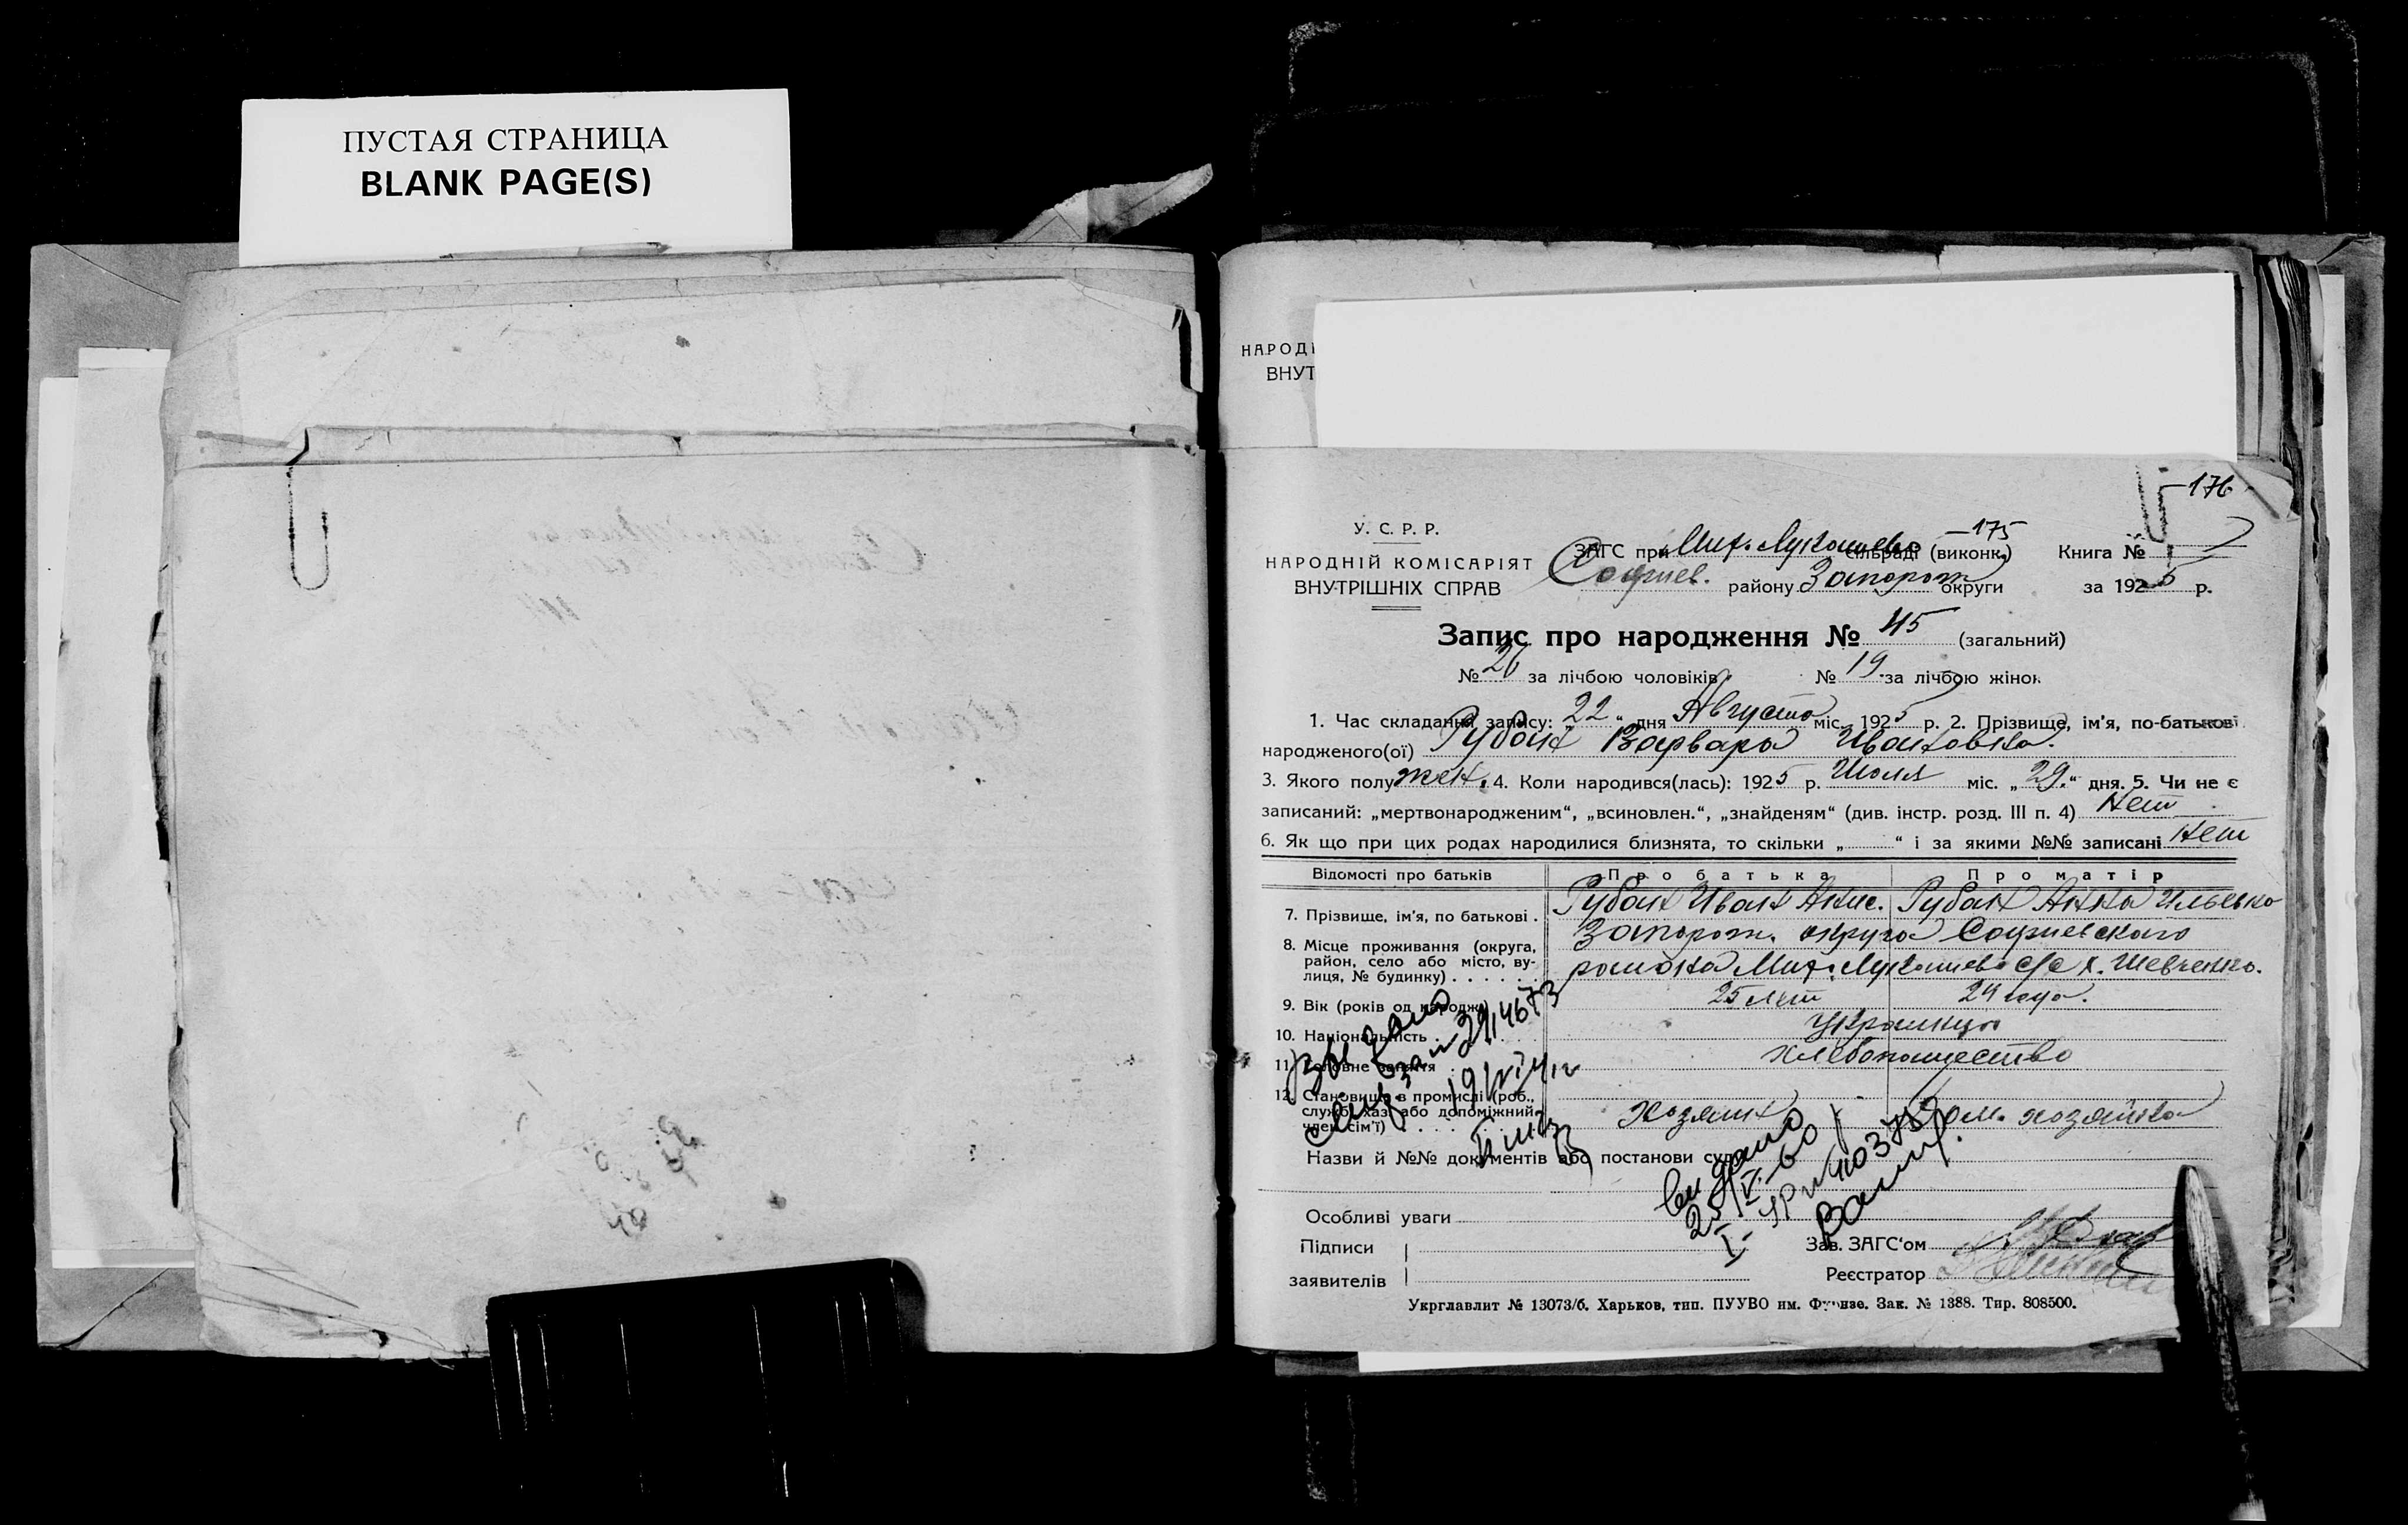 ПУСТАЯ СТРАНИЦА
BLANK PAGE(S)
НАРОД
ВНУТ
176
У. С. Р. Р.
НАРОДНІЙ КОМІСАРІЯТ
ВНУТРІШНІХ СПРАВ
175
ЗАГС при Мих. Лукашево сільраді (виконк.) Книга №
Софиев. району Запорож округи за 1925 р.
Запис про народження № 45 (загальний)
№ 26 за лічбою чоловіків № 19 за лічбою жінок
1. Час складання запису: „22“ дня Августа міс. 1925 р. 2. Прізвище, ім'я, по-батькові
народженого(ої) Рубан Варвара Ивановна.
3. Якого полу жен. 4. Коли народився(лась): 1925 р. Июля міс. „29.“ дня. 5. Чи не є
записаний: „мертвонародженим“, „всиновлен.“, „знайденям“ (див. інстр. розд. III п. 4) Нет
6. Як що при цих родах народилися близнята, то скільки „ “ і за якими №№ записані Нет
Відомості про батьків Про батька Про матір
7. Прізвище, ім'я, по батькові . Рубан Иван Анис. Рубан Анна Ильевна
8. Місце проживання (округа, район, село або місто, вулиця, № будинку) Запорож. округа Софиевского
района Мих. Лукашево с/с х. Шевченко.
9. Вік (років од народж.) 25 лет 24 года.
10. Національність Украинцы
11. Головне заняття Хлебопашество
12. Становище в промислі (роб., служб., хаз. або допоміжний член сім'ї) Хозяин Дом. хозяйка
Назви й №№ документів або постанови суду
Выдано
29/4673
видано
25/V-60
Особливі уваги
Підписи
заявителів
Зав. ЗАГС'ом
Реєстратор
Укрглавлит № 13073/б. Харьков, тип. ПУУВО им. Фрунзе. Зак. № 1388. Тир. 808500.